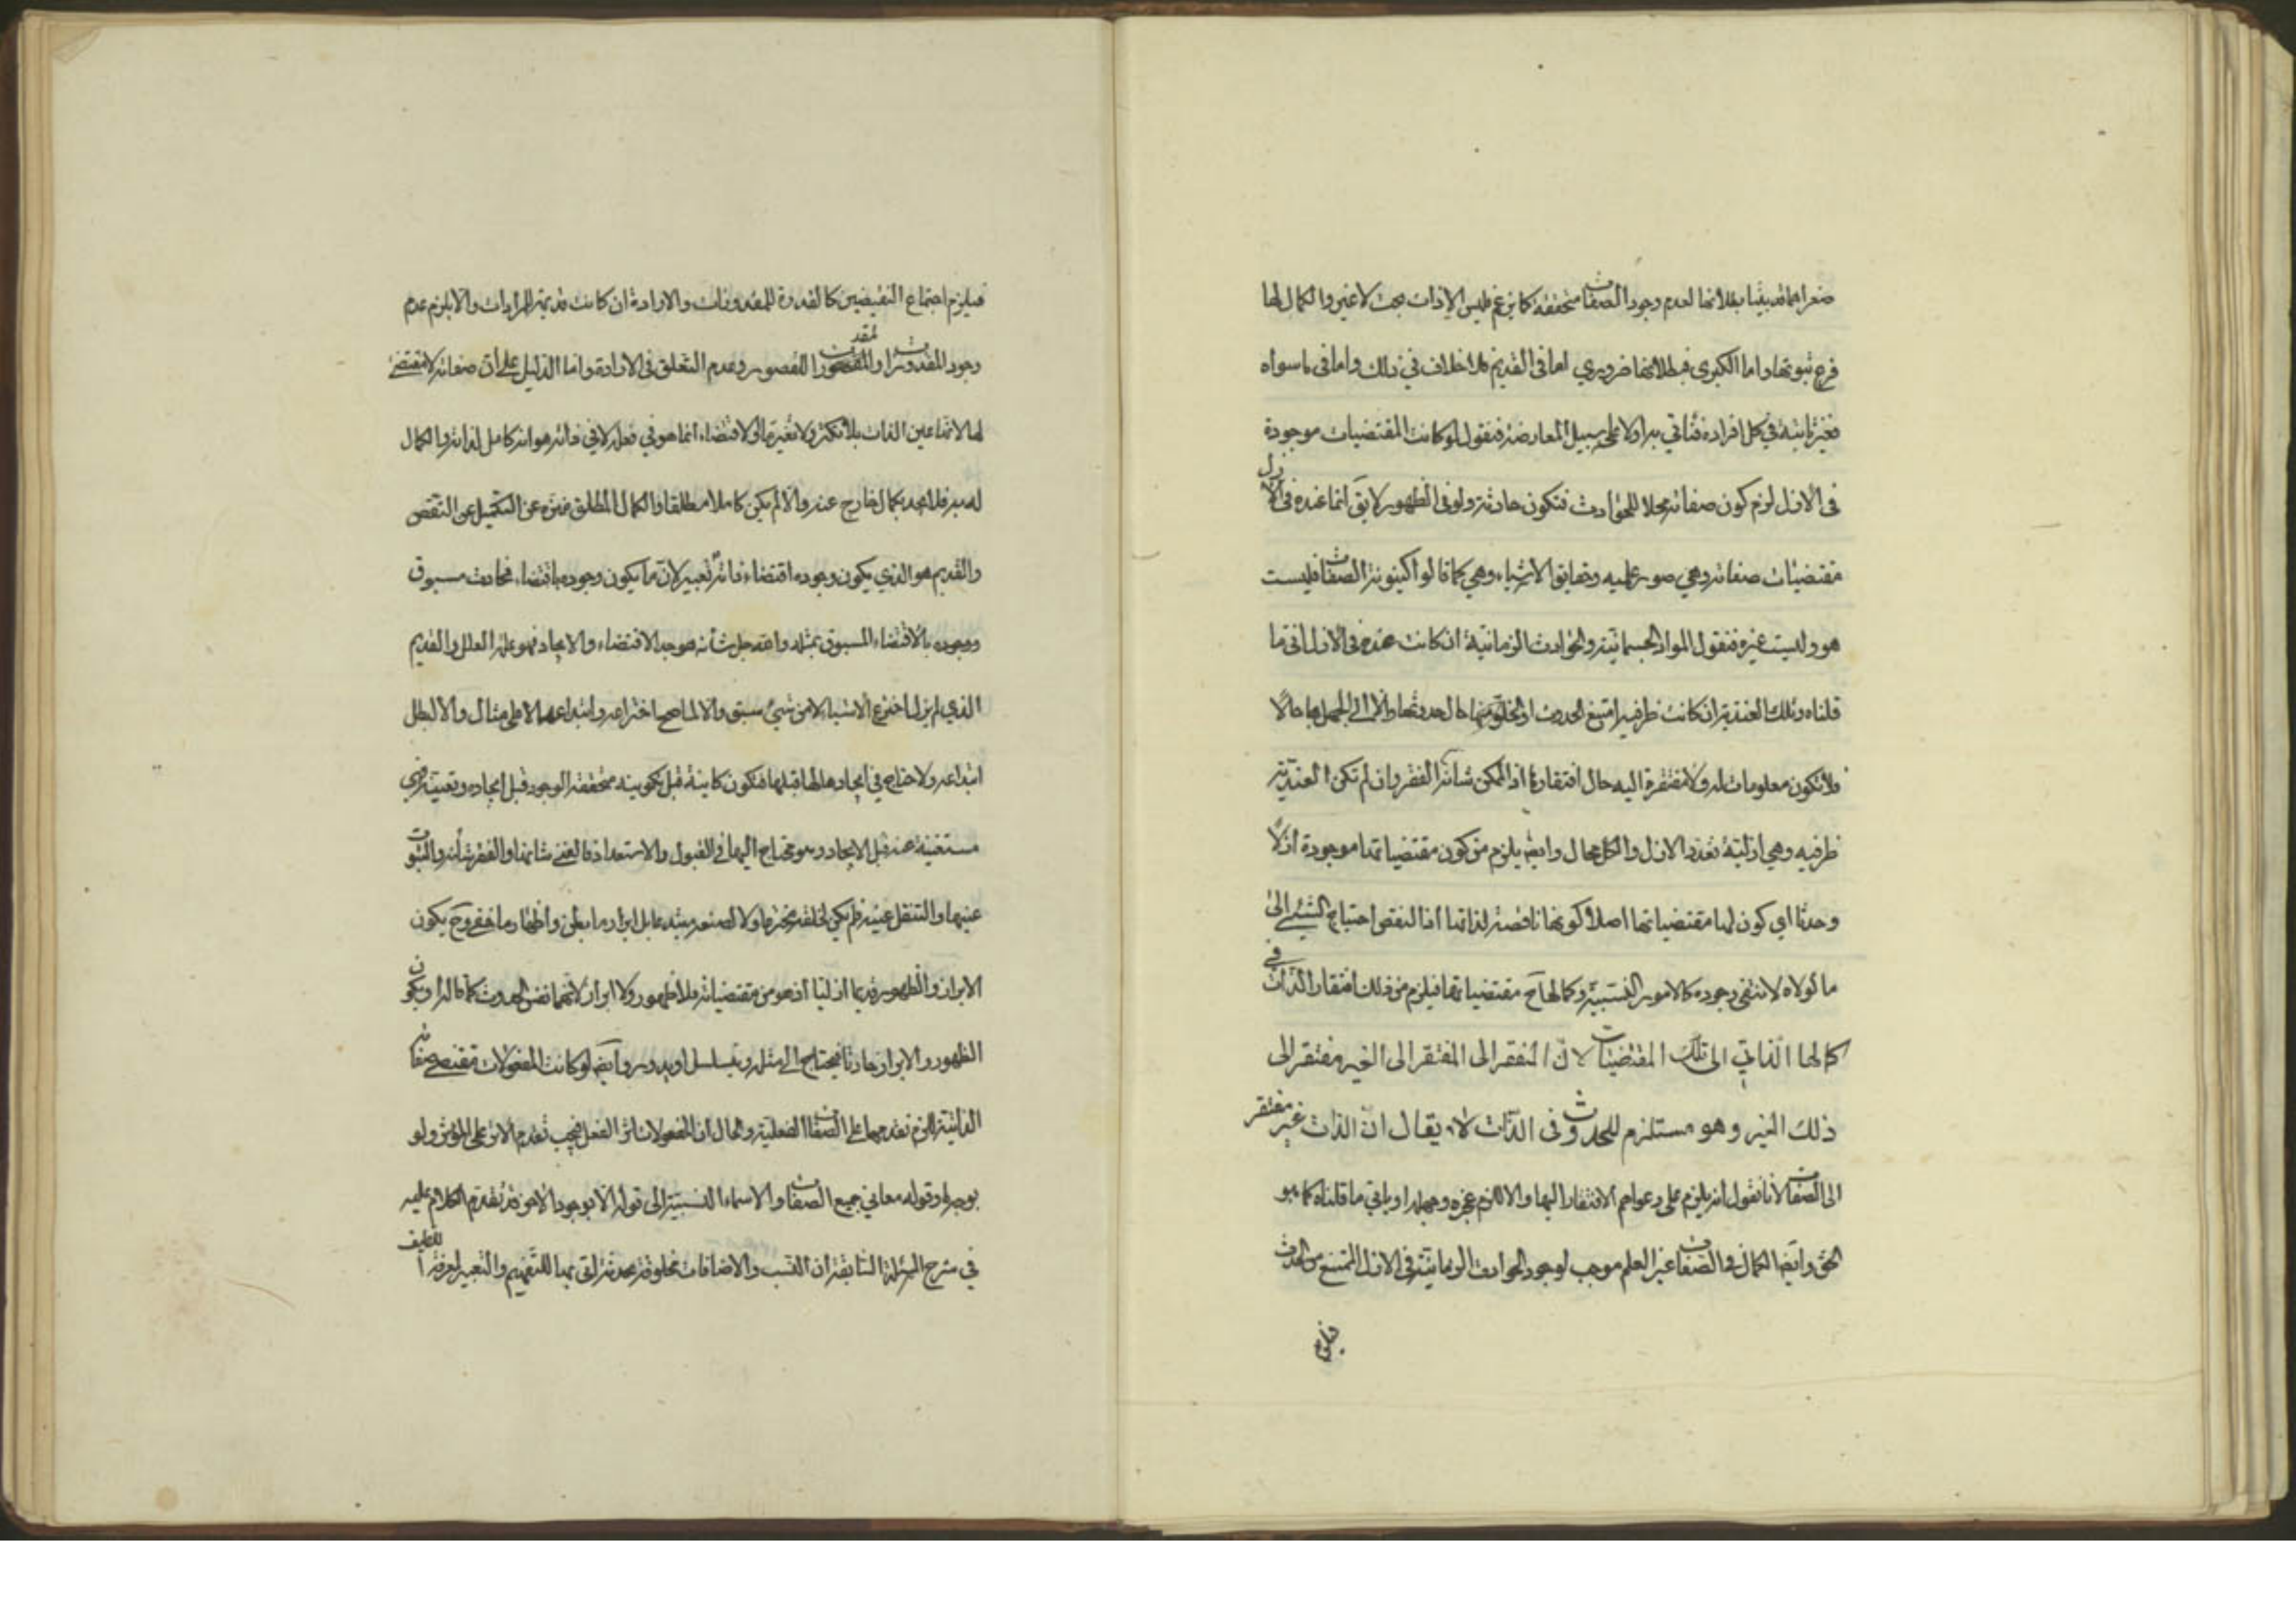 صغراهما قد بينا بطلانها لعدم وجود الصفات متحققة كما زعم فليس الا ذات بحت لا غير والكمال لها
فرع ثبوتها واما الكبرى فبطلانها ضروري اما في القديم فلا خلاف في ذلك واما في ما سواه
فغير ثابتة في كل افراده فنأتي به اولا على سبيل المعارضة فنقول لو كانت المقتضيات موجودة
في الازل لزم كون صفاته محلا للحوادث فتكون حادثة ولو في الظهور لا يق انما عنده في الازل
مقتضيات صفاته وهي صور علميه وحقايق الاشياء وهي كما قالوا كينونة الصفات فليست
هو وليست غيره فنقول المواد الجسمانية والحوادث الزمانية ان كانت عنده في الازل اتى ما
قلناه وتلك العندية ان كانت ظرفية امتنع الحدوث او الخلو منها حال حدوثها والا لجهل بها حالا
فلا تكون معلومات له ولا مفتقرة اليه حال افتقارها اذ الممكن شانه الفقر وان لم تكن العندية
ظرفيه وهي ازلية تعدد الازل والكل محال وايضا يلزم من كون مقتضياتها موجودة ازلا
وحدثا اي كون لها مقتضياتها اصلا كونها ناقصة لذاتها اذ النقص احتياج الشيئ الى
ما لولاه لانتفى وجوده كالامور النسبية وكمالها ح مقتضياتها فيلزم من ذلك افتقار الذات في
كمالها الذاتي الى تلك المقتضيات لان المفتقر الى المفتقر الى الغير مفتقر الى
ذلك الغير وهو مستلزم للحدوث في الذات لا يقال ان الذات غير مفتقر
الى الصفات لأنا نقول انه يلزم على دعواهم الافتقار اليها والا لزم عجزه وجهله او باقي ما قلناه كما هو
الحق وايضا الكمال في الصفات غير العلم موجب لوجود الحوادث الزمانية في الازل الممتنع من الحدث
فيلزم
فيلزم اجتماع النقيضين كالقدرة للمقدورات والارادة ان كانت قديمة للمرادات والا يلزم عدم
وجود المقدورات او المقدورات القصور وعدم التعلق في الارادة واما الدليل على أن صفاته لا مقتضى
لها لانها عين الذات بلا تكثر ولا تغير ما والاقتضاء انما هو في فعله لا في ذاته هو انه كامل لذاته والكمال
له به فلا يجد بكمال خارج عنه والا لم يكن كاملا مطلقا والكمال المطلق منزه عن التكميل عن النقص
والقديم هو الذي يكون وجوده اقتضاء ذاته تعبير لان ما يكون وجوده باقتضاء فحادث مسبوق
ووجوده بالاقتضاء المسبوق بمثله والله جل شأنه موجد الاقتضاء والايجاد فهو علة العلل والقديم
الذي لم يزل اخترع الاشياء لا من شئ سبق والا لما صح اختراعه وابتداعها لا على مثال والا لبطل
ابتداعه ولا حتاج في ايجادها لها قبلها فتكون كاينة قبل تكوينه متحققة الوجود قبل ايجاده وتعينه فهي
مستغنية عنه قبل الايجاد وهو محتاج اليها في القبول والاستعداد فالغنى شانها والفقر شأنه والثبوت
عنيها والتنقل عينه فلم يكن لخلقه مخترعا ولا لصنعه مبتدعا بل ابراز ما بطن واظهار ما خفي وح يكون
الابراز والظهور قديما ازليا اذ هو من مقتضيات فلا ظهور ولا ابراز لانهما نفس الحدوث كما قالوا ويكون
الظهور والابراز حادثا فيحتاج الى مثله ويتسلسل او يدور وايضا لو كانت المفعولات مقتضى صفاته
الذاتية لزم تقدمها على الصفات الفعلية والحال ان المفعولات اثر الفعل فيجب تقدم الاثر على المؤثر ولو
بوجه وقوله معاني جميع الصفات والاسماء النسبية الى قوله الا بوجود الامور قد تقدم الكلام عليه
في شرح المسئلة السابقة ان النسب والاضافات مخلوقة محدثة اتى بها للتفهيم والتعبير لمعرفة التكليف